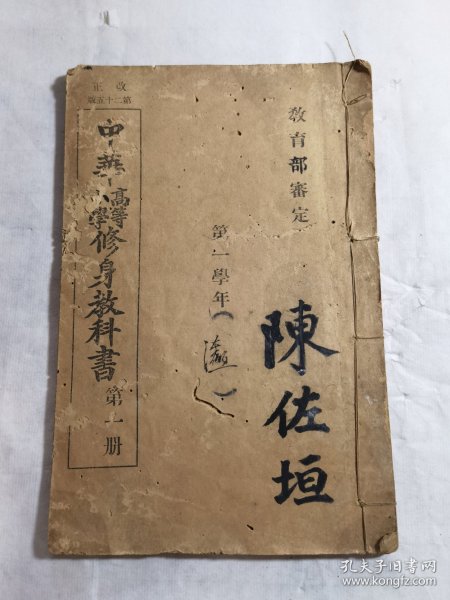 教育部審定
第一學年（
）
陳佐垣
改正
第二十五版
中華高等小學修身教科書 第一册
孔夫子旧书网
www.kongfz.com